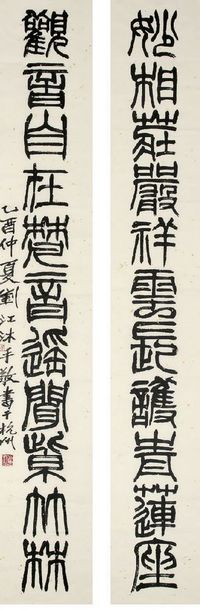 妙相莊嚴祥雲長護青蓮座
觀音自在梵音遙聞紫竹林
乙酉仲夏劉江沐手敬書于杭州